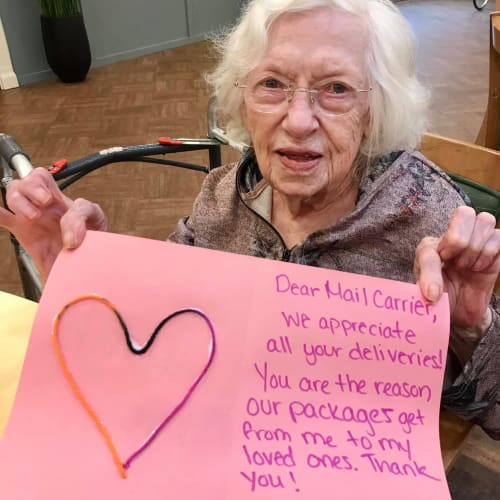 Dear Mail Carrier,
We appreciate
all your deliveries!
You are the reason
our packages get
from me to my
loved ones. Thank
You!